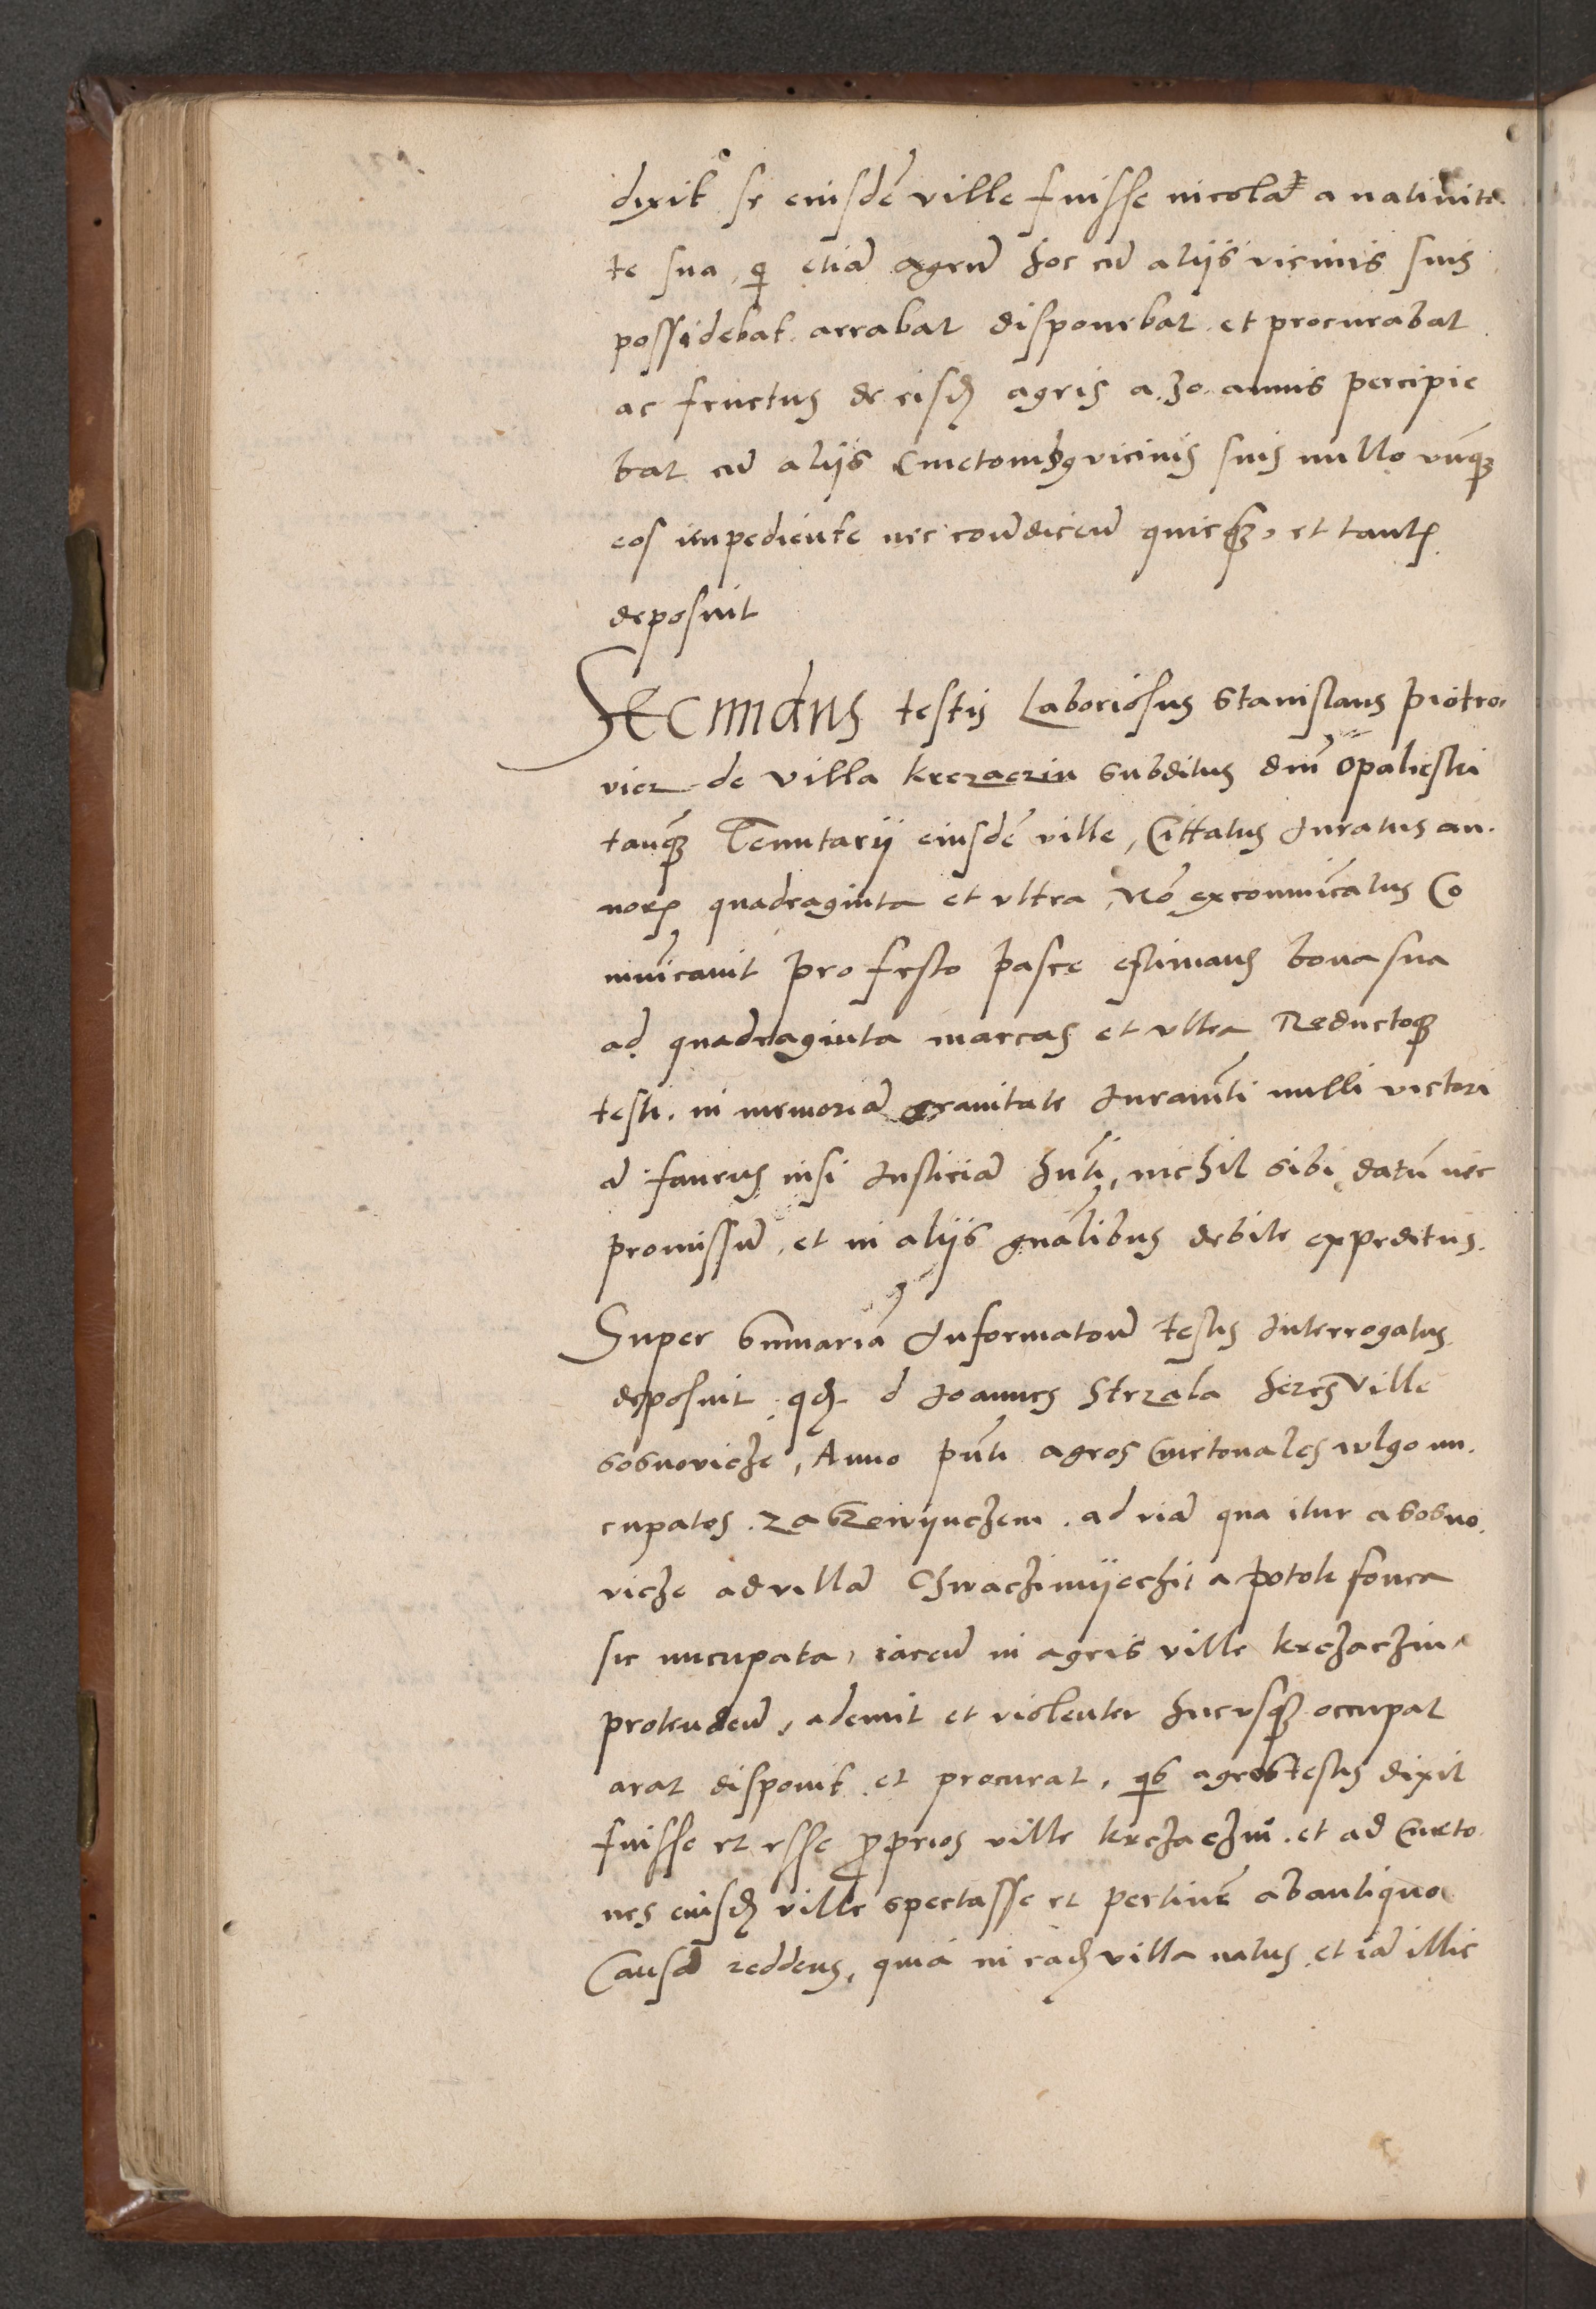 dixit se eiusdē ville fuisse incolā a nativita
te sua, qͥ etiā agrū hoc cū aliis vicinis suis
possidebat arrabat disponebat et procurabat
ac fructus de eisdꝫ agris a .30. annis percipie
bat cū aliis Cmetonibꝫ vicinis suis nullo vnꝙꝫ
eos impediente nec cont͞dicen̄ quicꝙꝫ, et tantꝫ
deposuit
Secundus testis Laboriosus Stanislaus Piotro
vicz de villa krczaczin subditus dn̄i Opaliczki
tanꝙꝫ Tenutarii eiusdē ville, Cittatus Iuratus an
norꝫ quadraginta et vltra, Nō excom̄unicatus Co
mūnicavit pro festo pasce estimans bona sua
ad quadraginta marcas et vltra Reductoqꝫ
testi in memoriā gravitate Iuram̄ti nulli victori
ā favens nisi Iusticiā hn̄ti, nichil sibi datū nec
promissū, et in aliis gn̄alibus debite expeditus.
Super sum̄mariā Informatōnē testis Interrogatus
deposuit qdꝫ d Ioannes Strzala heres ville
Sosnovicze, Anno pn̄ti agros Cmetonales wlgo nu
cupatos zabrzewynczem ad viā qua itur a Sosno
vicze ad villā Chwaczimyechit a potok fonca
sic nūcupata, iacen̄ in agris ville krczaczin
protenden̄, ademit et violenter hucusꝙꝫ occupat
arat disponit et procurat, qͦs agros testis dixit
fuisse et esse ꝓprios ville krczaczin et ad Cmeto
nes eiusdꝫ ville spectasse et pertinē̄ ab antiquo
Causā reddens, quia in eadꝫ villa natus et iā illic